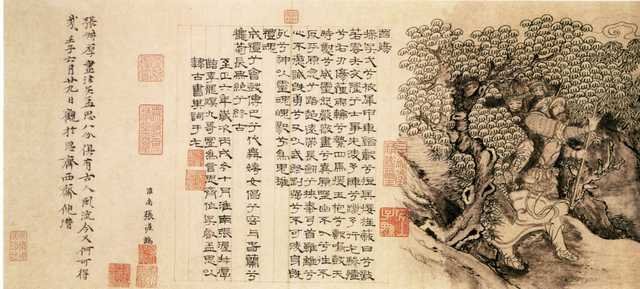 國殤
操吳戈兮被犀甲車錯轂兮短兵接旌蔽日兮敵
若雲矢交墜兮士爭先凌余陣兮躐余行左驂殪
兮右刃傷霾兩輪兮縶四馬援玉枹兮擊鳴鼓天
時懟兮威靈怒嚴殺盡兮棄原壄出不入兮往不
反平原忽兮路超遠帶長劍兮挾秦弓首雖離兮
心不懲誠既勇兮又以武終剛強兮不可凌身既
死兮神以靈魂魄毅兮為鬼雄
禮魂
成禮兮會鼓傳芭兮代舞姱女倡兮容與春蘭兮
秋菊長無絕兮終古
至正六年歲次丙戌冬十月淮南張渥叔厚
臨李龍眠九歌圖為言思齊作吳叡孟思以
隸古書其詞于左
淮南張渥
張叔厚畫法吳孟思八分俱有古人風流今又何可得
哉壬子六月廿九日觀於思齊西齋倪瓚